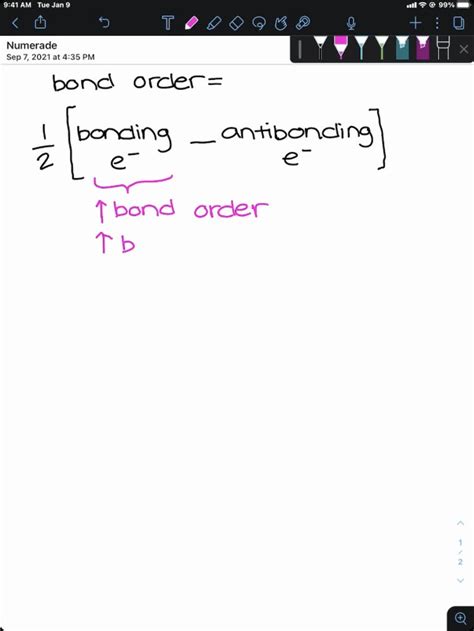 9:41 AM Tue Jan 9
99%
T
Numerade
Sep 7, 2021 at 4:35 PM
bond order=
1/2 [bonding e⁻ – antibonding e⁻]
↑bond order
↑b
1
/
2